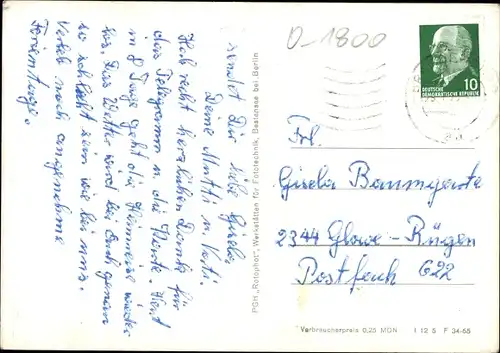 D-1800
10
DEUTSCHE
DEMOKRATISCHE REPUBLIK
sendet Dir liebe Gisela
Deine Mutti u. Vati.
Hab recht herzlichen Dank für
das Telegramm u. die Karte. Heut
in 8 Tage geht die Heimreise wieder
los. Das Wetter wird bei Euch genau
so schlecht sein wie bei uns.
Verleb noch angenehme
Ferientage.
PGH „Rotophot“, Werkstätten für Fototechnik, Bestensee bei Berlin
Frl.
Gisela Baumgarte
2344 Glowe-Rügen
Postfach 622
Verbraucherpreis 0,25 MDN I 12 5 F 34-65